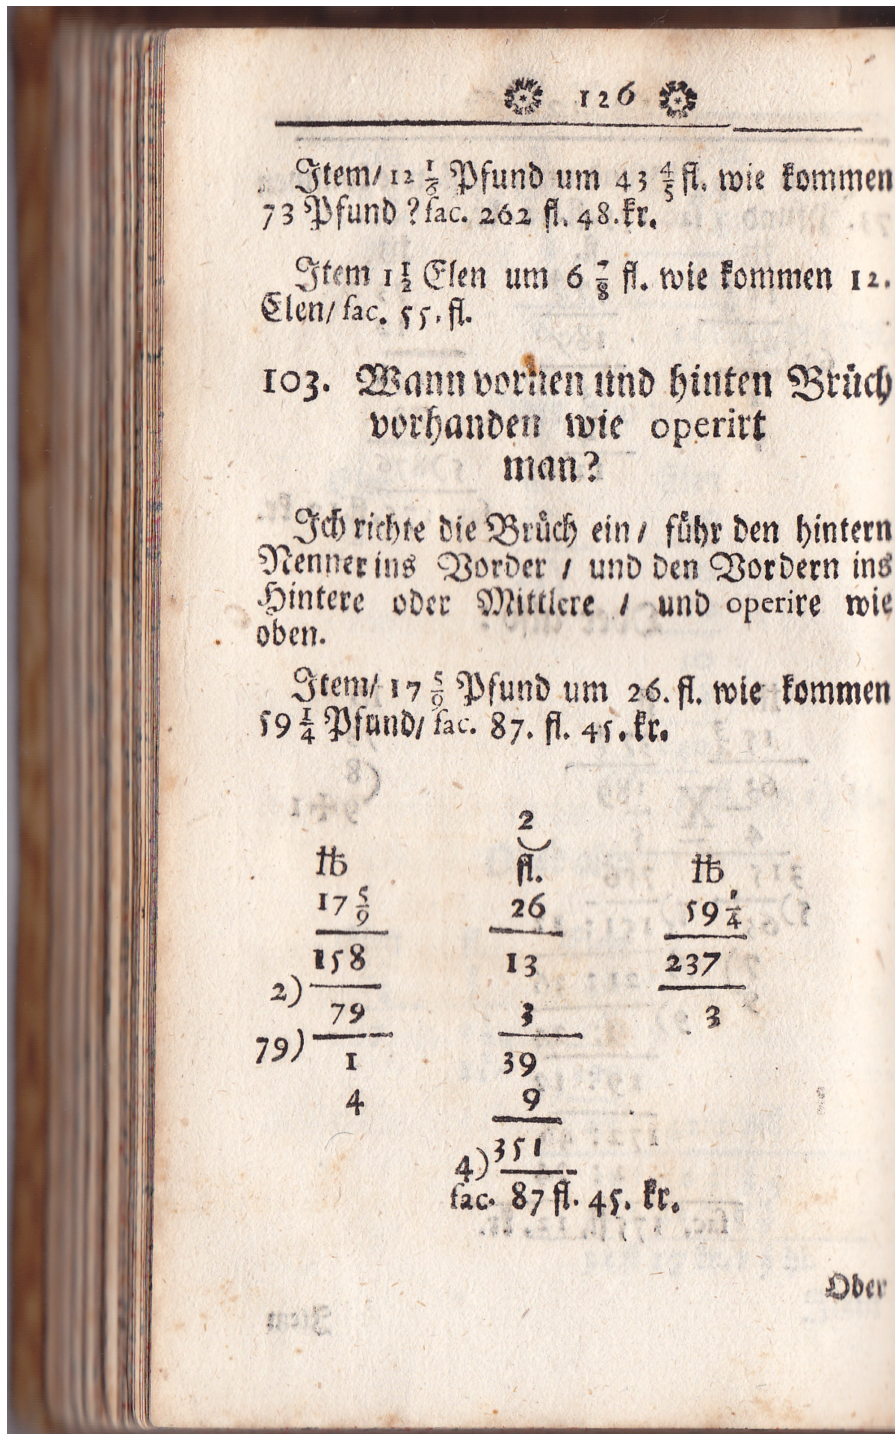 126
Item/ 12 1/6 Pfund um 43 4/5 fl. wie kommen
73 Pfund ? fac. 262 fl. 48. kr.
Item 1 1/2 Elen um 6 7/8 fl. wie kommen 12.
Elen/ fac. 55. fl.
103. Wann vornen und hinten Brüch
vorhanden wie operirt
man?
Ich richte die Brüch ein / führ den hintern
Nenner ins Vorder / und den Vordern ins
Hintere oder Mittlere / und operire wie
oben.
Item/ 17 5/9 Pfund um 26. fl. wie kommen
59 1/4 Pfund/ fac. 87. fl. 45. kr.
2
℔ fl. ℔
17 5/9 26 59 1/4
158 13 237
2) 79 3 3
79) 1 39
4 9
351
4)
fac. 87 fl. 45. kr.
Oder